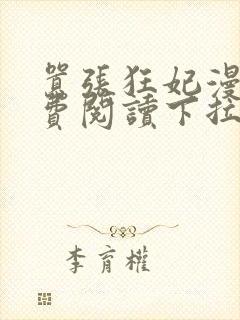 囂張狂妃漫
費閱讀下拉
李育權